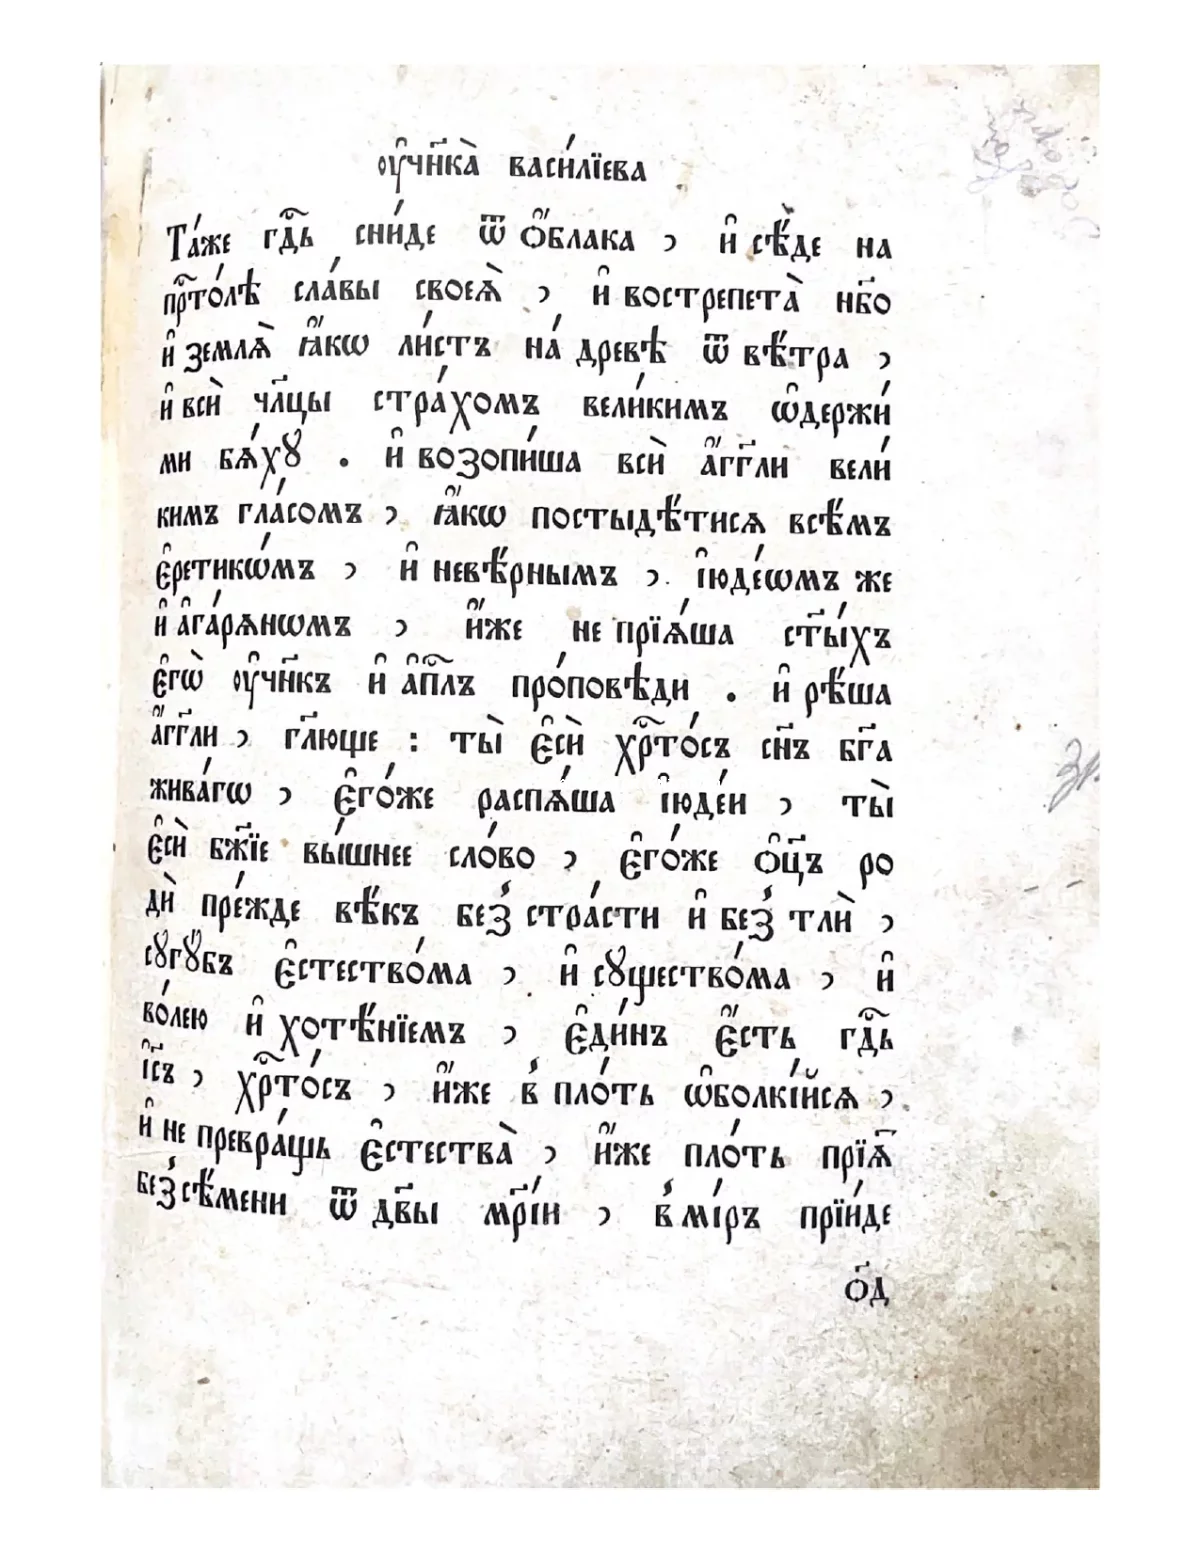 ᲂу҆чн҃ка̀ васи́лїева
Та́же гдⷭ҇ь сни́де ѿ ѻ҆́блака , и҆ сѣ́де на
прⷭ҇то́лѣ сла́вы своеѧ̀ , и҆ вострепета̀ нб҃о
и҆ землѧ̀ ꙗ҆́кѡ ли́стъ на́ древѣ ѿ вѣ́тра ,
и҆ всѝ чл҃цы стра́хомъ вели́кимъ ѡ҆держи́
ми бѧ́хꙋ . и҆ возопи́ша всѝ а҆́гг҃ли вели́
кимъ гла́сомъ , ꙗ҆́кѡ постыдѣ́тисѧ всѣ́мъ
є҆ретикѡ́мъ , и҆ невѣ́рнымъ , і҆юде́ѡмъ же
и҆ а҆га́рѧнѡмъ , и҆́же не прїѧ́ша ст҃ы́хъ
є҆гѡ̀ ᲂу҆чн҃къ и҆ а҆пⷭ҇лъ про́повѣди . и҆ рѣ́ша
а҆́гг҃ли , гл҃юще : ты̀ є҆сѝ хрⷭ҇то́съ сн҃ъ бг҃а
жива́гѡ , є҆го́же распѧ́ша і҆юде́и , ты̀
є҆сѝ бж҃їе вы́шнее сло́во , є҆го́же ѻ҆ц҃ъ ро
дѝ пре́жде вѣ́къ без̾ стра́сти и҆ без̾ тлѝ ,
сꙋгꙋ́бъ є҆стество́ма , и҆ сꙋщество́ма , и҆
во́лею и҆ хотѣ́нїемъ , є҆ди́нъ є҆́сть гдⷭ҇ь
і҆с҃ъ , хрⷭ҇то́съ , и҆́же в̾ пло́ть ѡ҆болкі́йсѧ ,
и҆ не превра́щь є҆стества̀ , и҆́же пло́ть прїѧ҃
без̾ сѣ́мени ѿ дв҃ы мр҃і́и , в̾ мі́ръ прїи́де
ѻ҃д